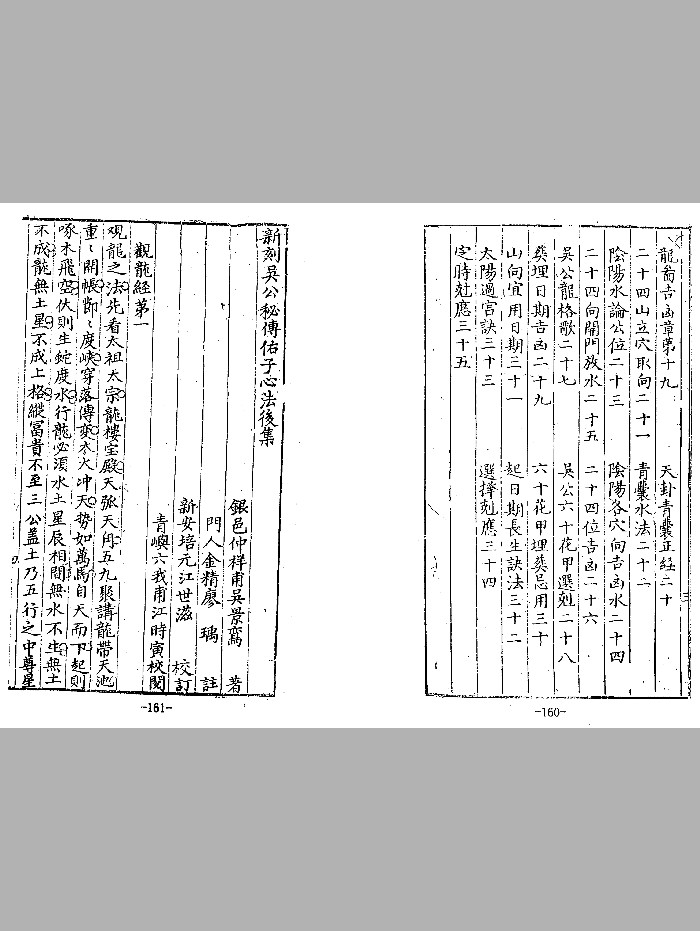 龍翁吉凶章第十九　天卦青囊正経二十
二十四山立穴取向二十一　青囊水法二十二
陰陽水論公位二十三　陰陽各穴向吉凶水二十四
二十四向開門放水二十五　二十四位吉凶二十六
吳公龍格歌二十七　吳公六十花甲選剋二十八
葬埋日期吉凶二十九　六十花甲埋葬忌用三十
山向宜用日期三十一　起日期長生訣法三十二
太陽過宮訣三十三　選擇尅應三十四
定時尅應三十五
-160-
新刻吳公秘傳佑子心法後集
銀邑仲祥甫吳景鸞　著
門人金精廖　瑀　註
新安培元江世滋　校訂
青嶼六我甫江時寅校閱
觀龍經第一
观龍之法先看太祖太宗龍樓宝殿天張天角五九聚講龍帶天池
重〻開帳斷〻度峽穿落傳变木火冲天势如萬馬自天而下起則
啄木飛空伏則生蛇度水行龍必須水土星辰相間無水不生無土
不成龍無土星不成上格縱富貴不至三公盖土乃五行之中尊星
-161-